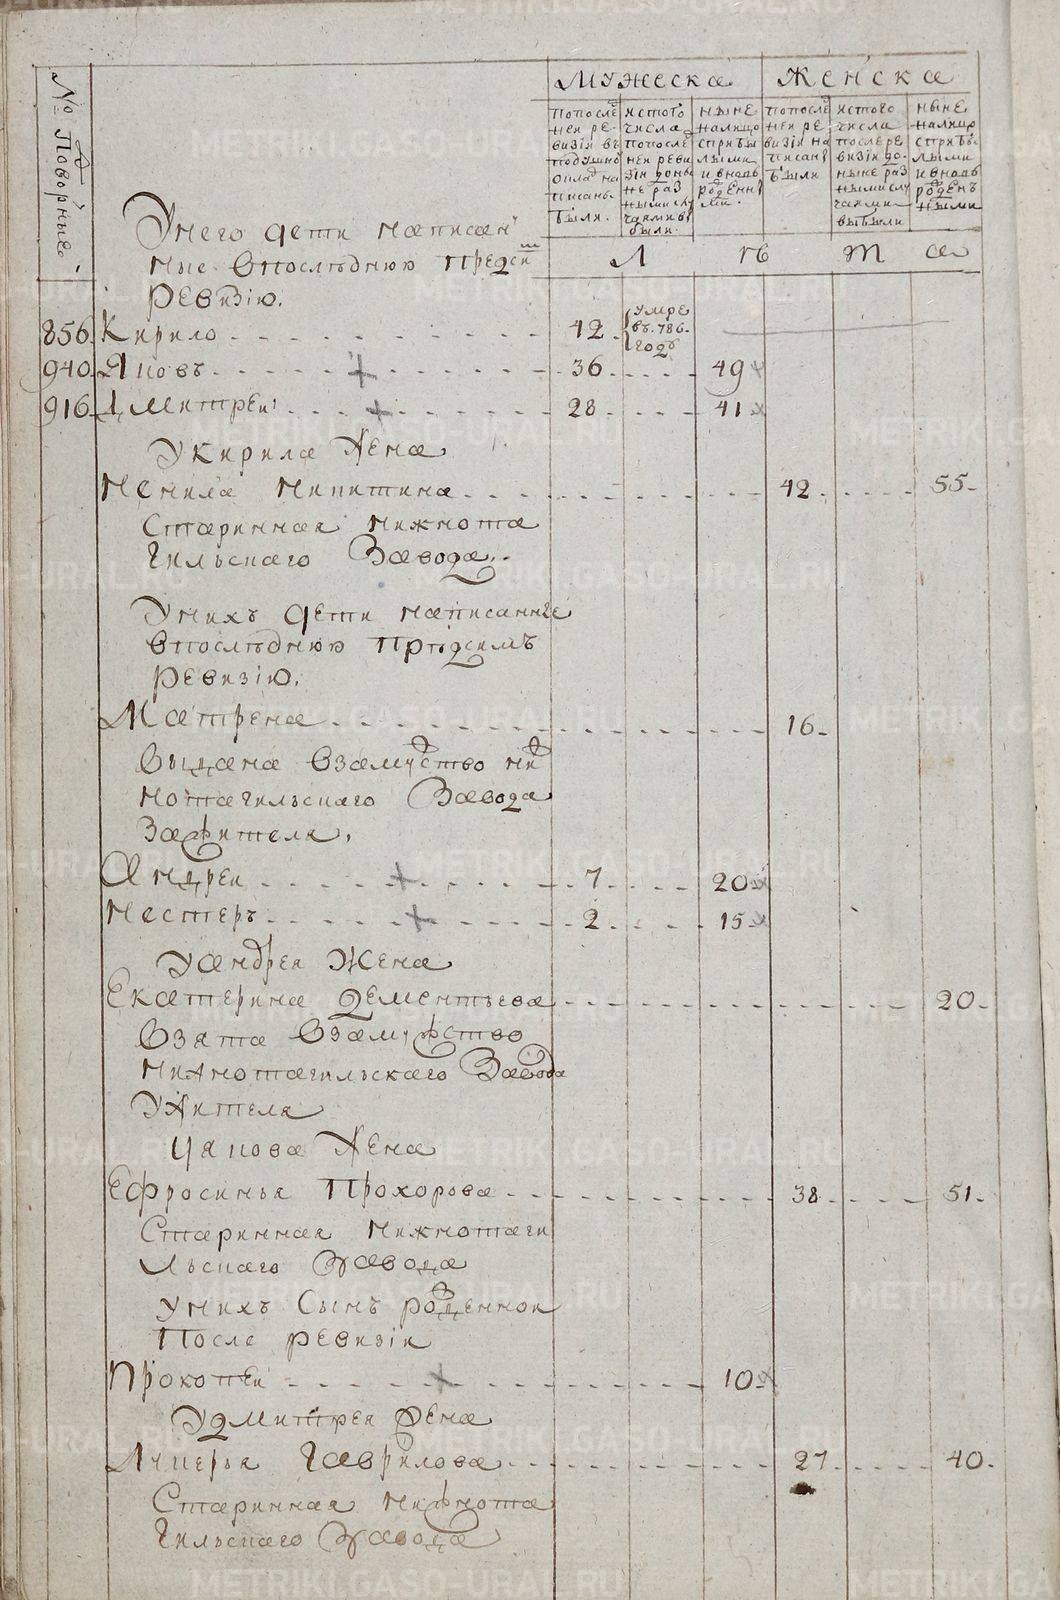 № Подворные.
Мужеска
Женска
По после
ней ре-
визіи въ
подушно
оклад на
писаны
были.
ис того
числа
по после
ней реви
зіи доны
не раз
ными слу
чаями вы
были.
ныне
на лицо
с прибы
лыми
и вновь
рожденны
ми.
по после
ней ре
визіи на
писаны
были
ис того
числа
после ре
визіи до-
ныне раз
ными слу
чаями
выбыли
ныне
на лицо
с прибы
лыми
и вновь
рожденъ
ными
Л ѣ т а
У него дети написан
ные впоследнюю предсим
ревизію.
856. Кирило 42. умре въ 786. годѣ
940. Яковъ 36 49
916. Дмитреи 28 41
У Кирила жена
Ненила Никитина 42 55
Старинная нижнота
гильскаго завода
У нихъ дети написанные
впоследнюю предсимъ
ревизію.
Матрена 16
Выдана взамуство ниж
нотагильскаго завода
зажителя.
Андреи 7 20
Нестеръ 2 15
У Андрея жена
Екатерина Дементьева 20
Взята взамужство
нижнотагильскаго завода
у жителя
У Якова жена
Ефросинья Прохорова 38 51
Старинная нижнотаги
льскаго завода
У нихъ сынъ рожденнои
после ревизіи
Прокопеи 10
У Дмитрея жена
Лукерья Гаврилова 27 40
Старинная нижнота
гильскаго завода
METRIKI.GASO-URAL.RU